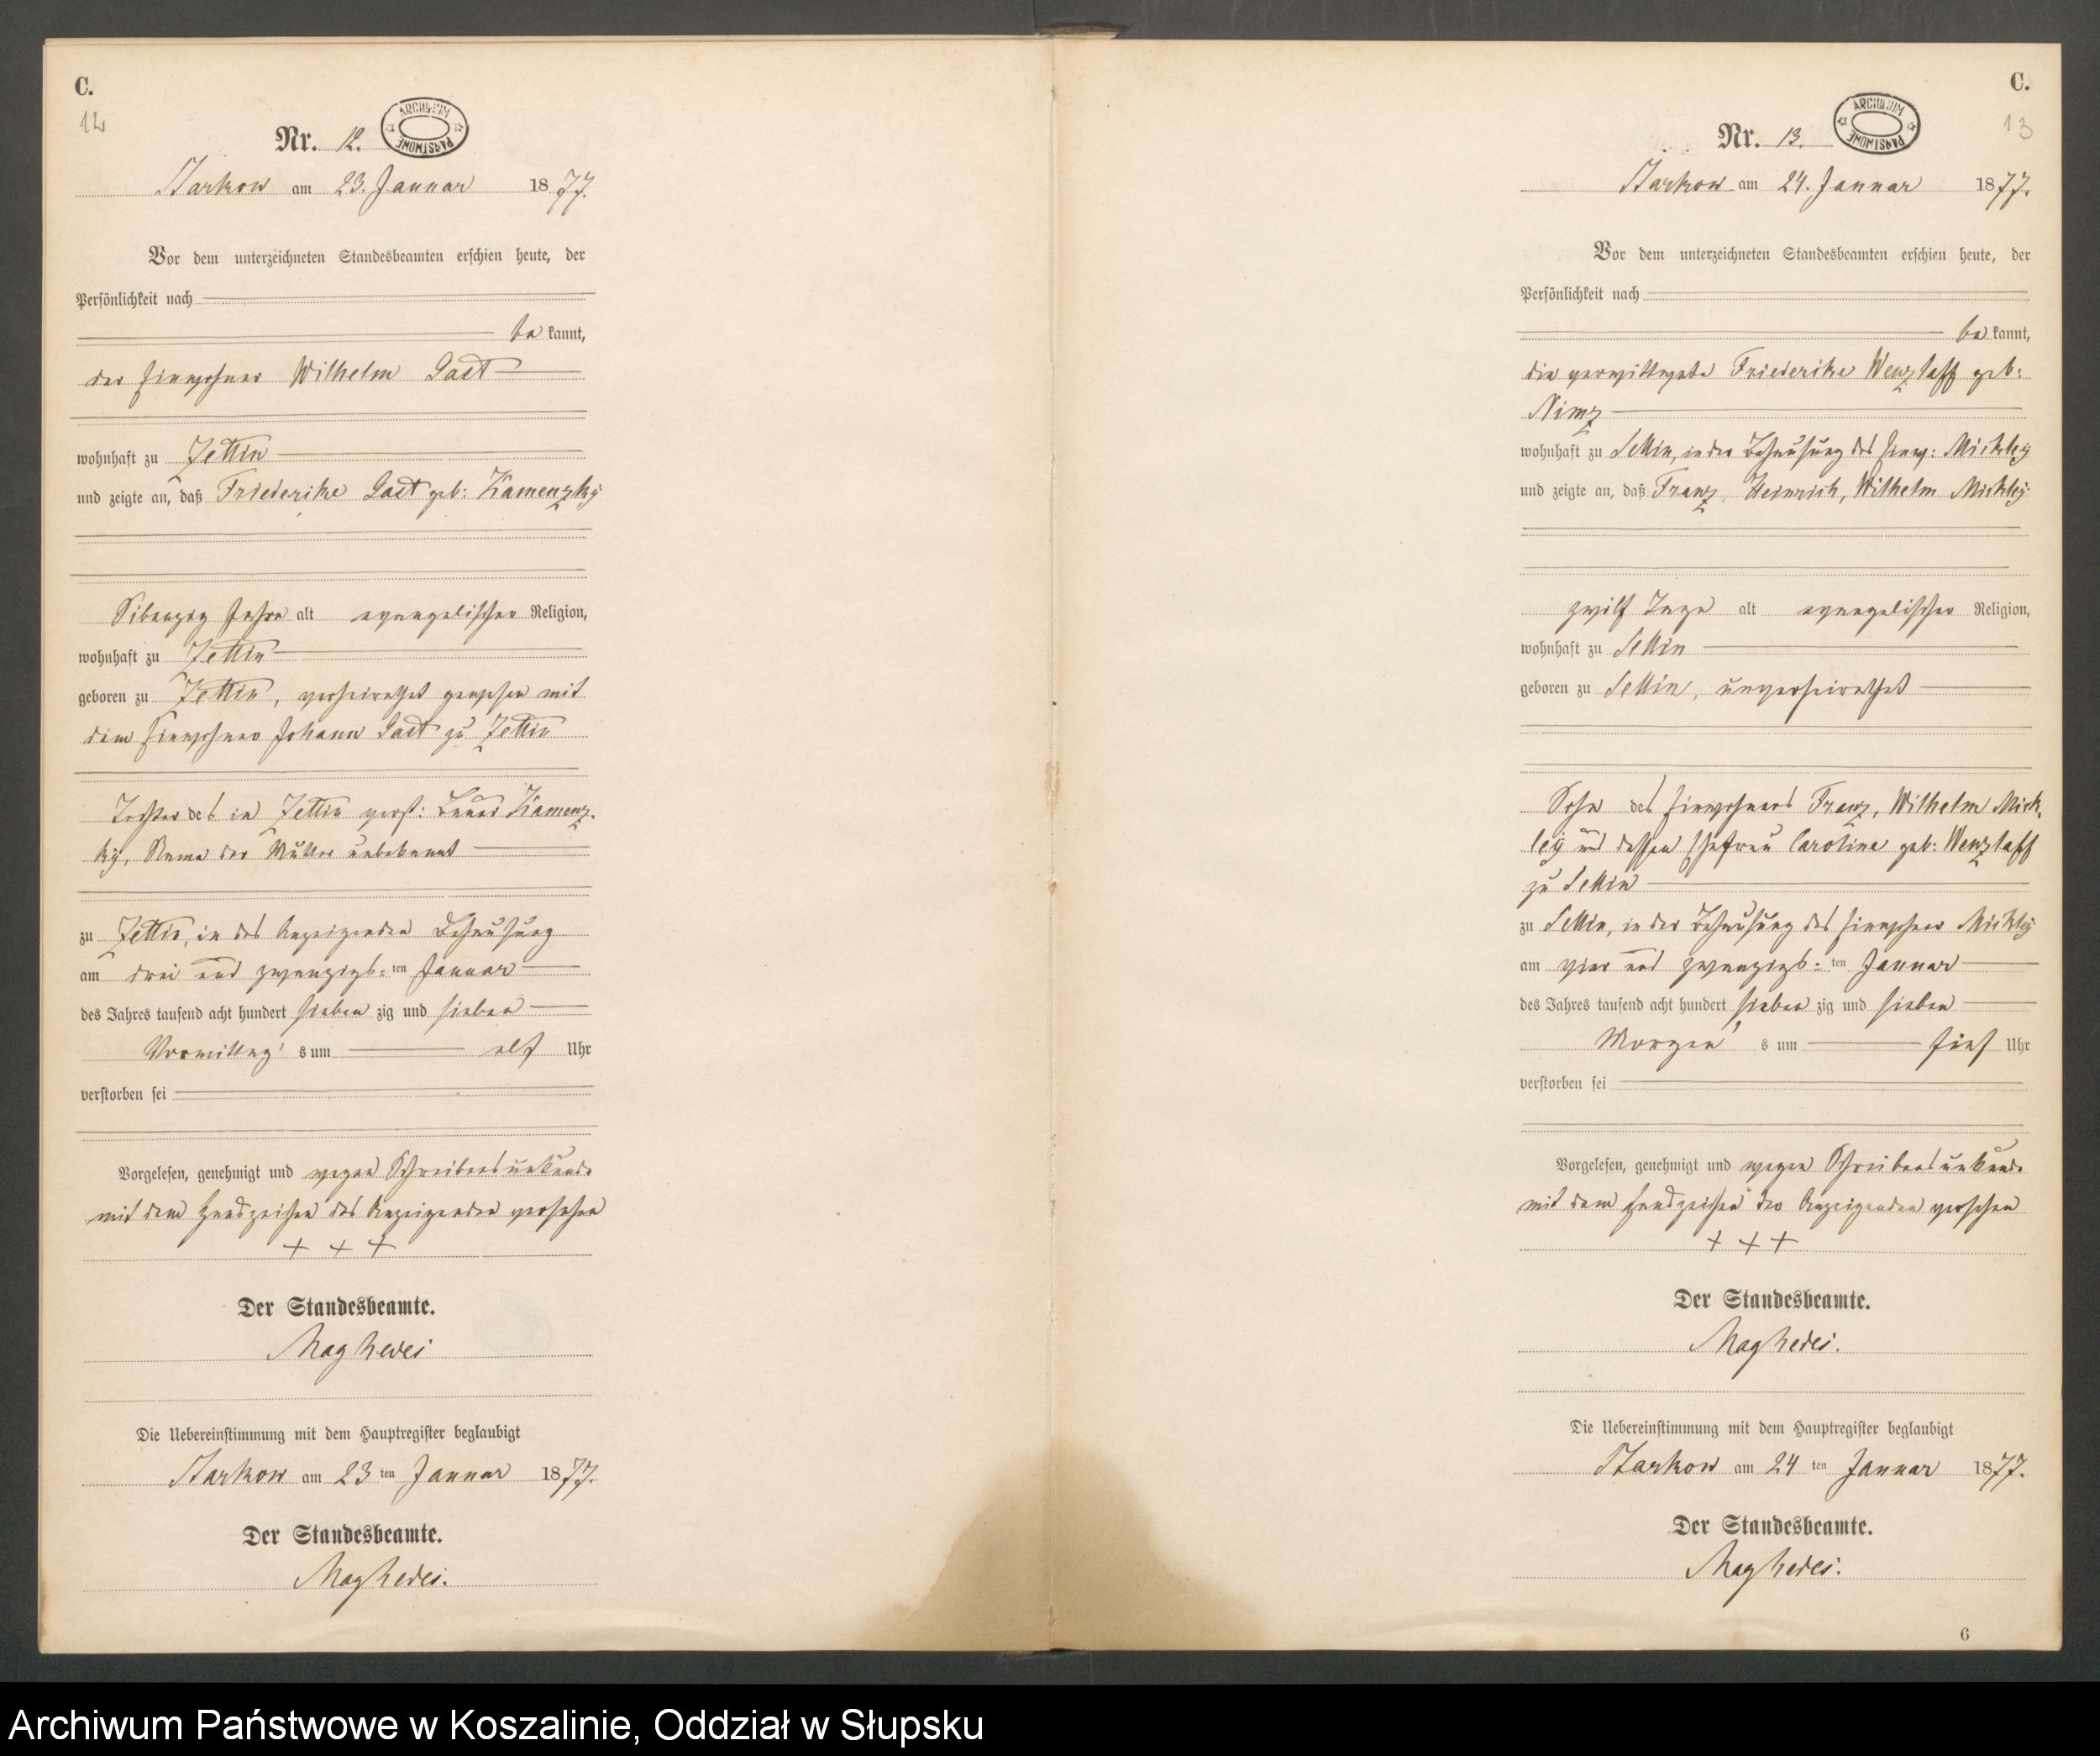 C.
12
Nr. 12.
ARCHIWUM PAŃSTWOWE
Starkow am 23. Januar 1877.
Vor dem unterzeichneten Standesbeamten erschien heute, der
Persönlichkeit nach
be kannt,
der Einwohner Wilhelm Gast
wohnhaft zu Zettin
und zeigte an, daß Friederike Gast geb: Kamenzky
Sibenzig Jahre alt evangelischer Religion,
wohnhaft zu Zettin
geboren zu Zettin, verheirathet gewesen mit
dem Einwohner Johann Gast zu Zettin
Tochter des in Zettin verst: Bauer Kamenz-
ky, Name der Mutter unbekannt
zu Zettin, in des Anzeigenden Behausung
am drei und zwanzigs- ten Januar
des Jahres tausend acht hundert sieben zig und sieben
Vormittag' s um elf Uhr
verstorben sei
Vorgelesen, genehmigt und wegen Schreibensunkunde
mit dem Handzeichen des Anzeigenden versehen
+ + +
Der Standesbeamte.
Die Uebereinstimmung mit dem Hauptregister beglaubigt
Starkow am 23 ten Januar 1877.
Der Standesbeamte.
C.
13
Nr. 13.
ARCHIWUM PAŃSTWOWE
Starkow am 24. Januar 1877.
Vor dem unterzeichneten Standesbeamten erschien heute, der
Persönlichkeit nach
be kannt,
die verwittwete Friederike Wenzlaff geb:
Nimz
wohnhaft zu Sellin, in der Behausung des Einw: Mickley
und zeigte an, daß Franz, Heinrich, Wilhelm Mickley
zwölf Tage alt evangelischer Religion,
wohnhaft zu Sellin
geboren zu Sellin, unverheirathet
Sohn des Einwohners Franz, Wilhelm Mick-
ley und dessen Ehefrau Caroline geb: Wenzlaff
zu Sellin
zu Sellin, in der Behausung des Einwohner Mickley
am vier und zwanzigs- ten Januar
des Jahres tausend acht hundert sieben zig und sieben
Morgen' s um fünf Uhr
verstorben sei
Vorgelesen, genehmigt und wegen Schreibensunkunde
mit dem Handzeichen der Anzeigenden versehen
+ + +
Der Standesbeamte.
Die Uebereinstimmung mit dem Hauptregister beglaubigt
Starkow am 24 ten Januar 1877.
Der Standesbeamte.
6
Archiwum Państwowe w Koszalinie, Oddział w Słupsku